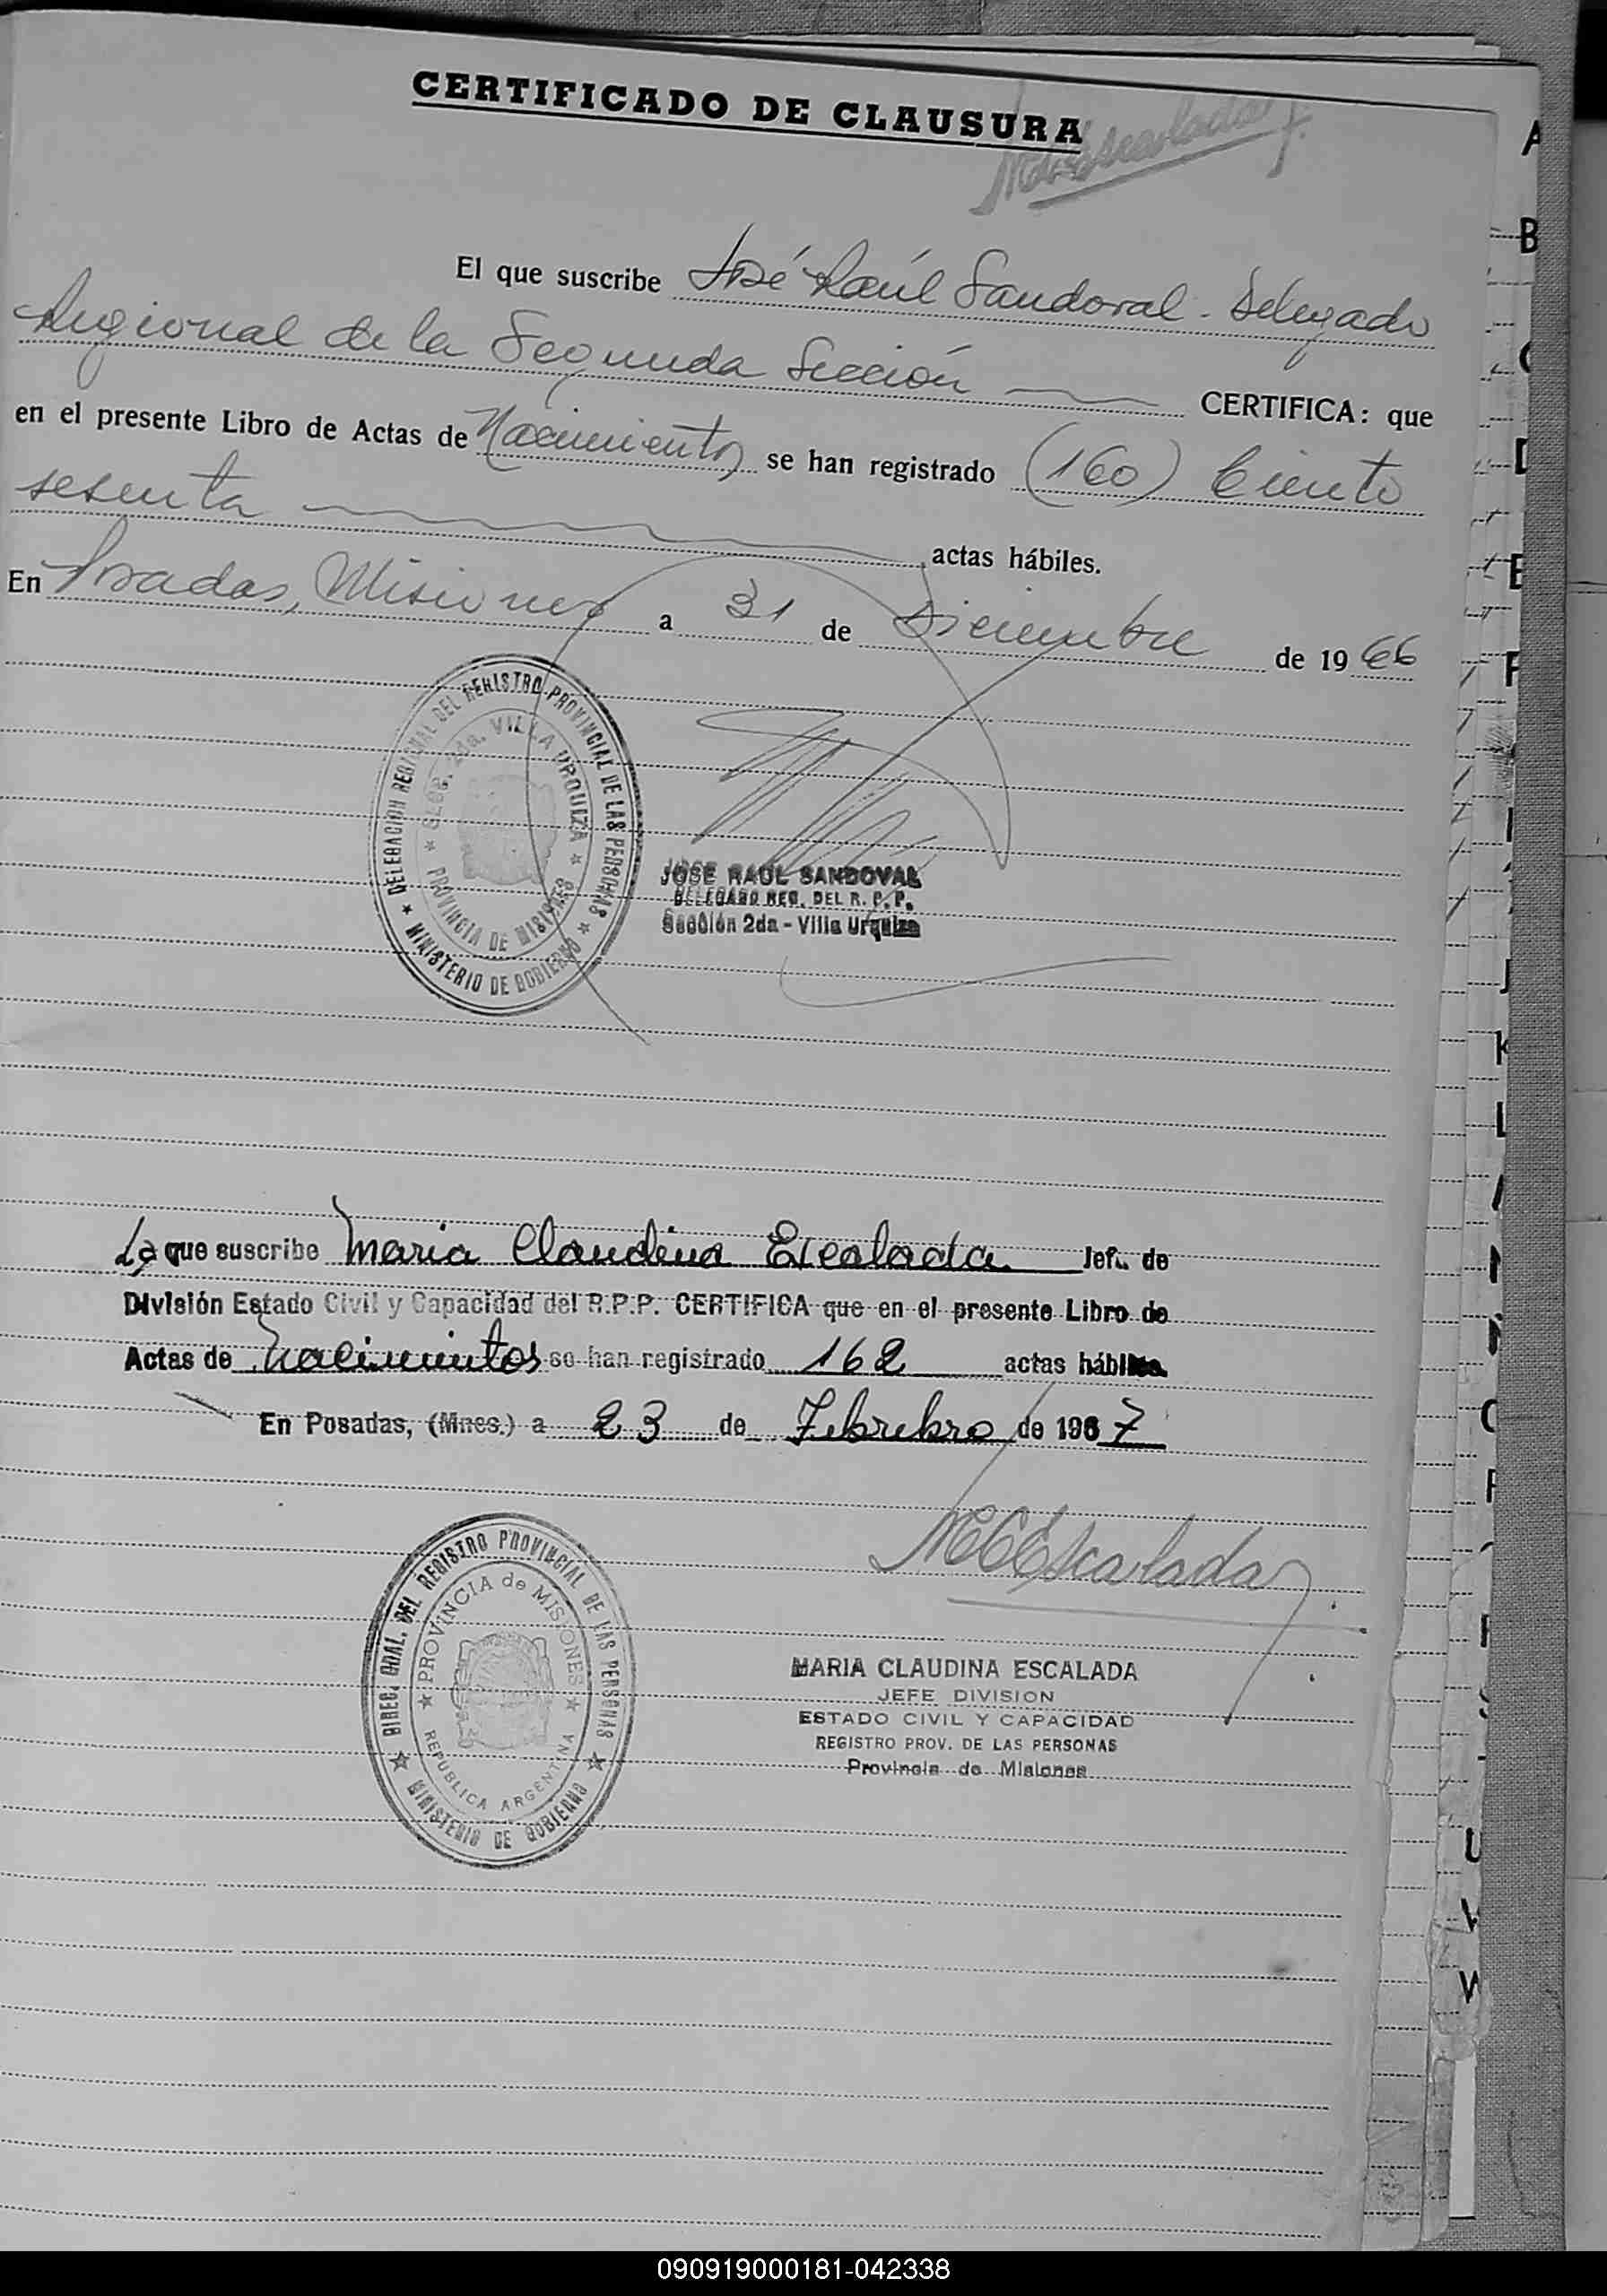 CERTIFICADO DE CLAUSURA
El que suscribe José Raúl Sandoval - Delegado
Regional de la Segunda Sección CERTIFICA: que
en el presente Libro de Actas de Nacimientos se han registrado (160) Ciento
sesenta actas hábiles.
En Posadas, Misiones a 31 de Diciembre de 1966
DELEGACION REGIONAL DEL REGISTRO PROVINCIAL DE LAS PERSONAS
2da. VILLA URQUIZA
PROVINCIA DE MISIONES
MINISTERIO DE GOBIERNO
JOSE RAUL SANDOVAL
DELEGADO REG. DEL R. P. P.
Sección 2da - Villa Urquiza
La que suscribe Maria Claudina Escalada Jefe de
División Estado Civil y Capacidad del R.P.P. CERTIFICA que en el presente Libro de
Actas de Nacimientos se han registrado 162 actas hábiles
En Posadas, (Mnes.) a 23 de Febrero de 1967
MCEscalada
DIREC. GRAL. DEL REGISTRO PROVINCIAL DE LAS PERSONAS
PROVINCIA de MISIONES
REPUBLICA ARGENTINA
MINISTERIO DE GOBIERNO
MARIA CLAUDINA ESCALADA
JEFE DIVISION
ESTADO CIVIL Y CAPACIDAD
REGISTRO PROV. DE LAS PERSONAS
Provincia de Misiones
A
B
C
D
E
F
J
K
L
U
V
W
090919000181-042338